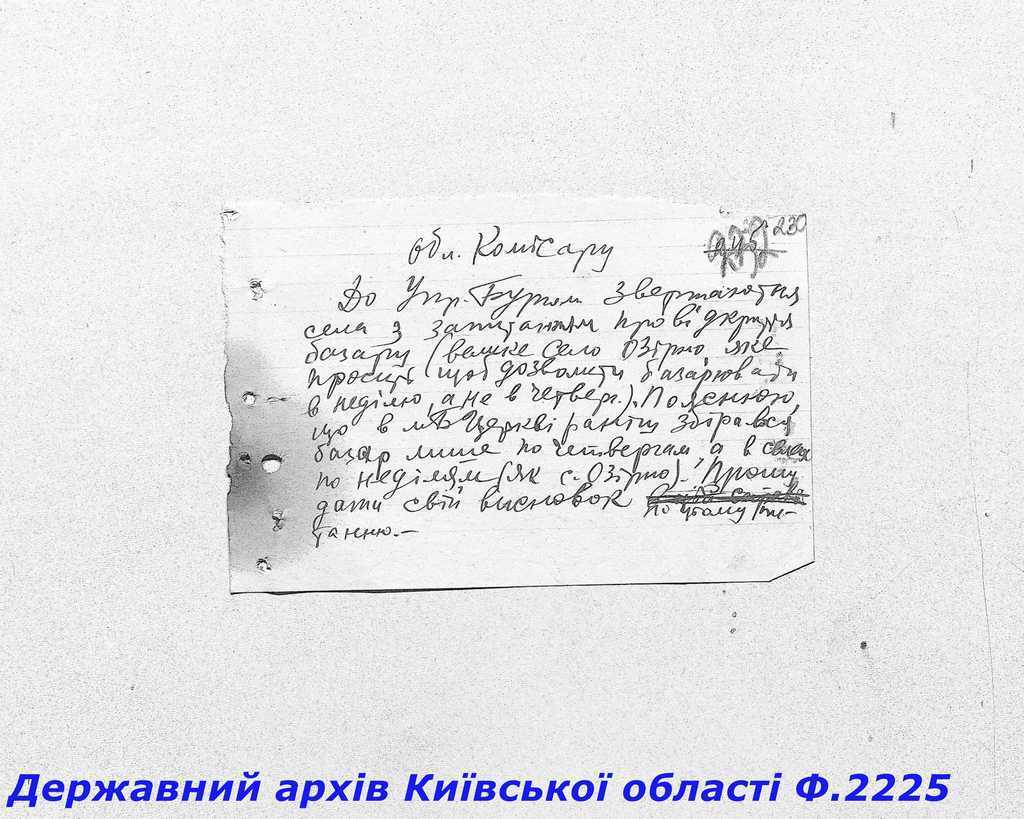 230
обл. Комісару
До Упр. Бургом. звертаються
села з запитанням про відкриття
базару (велике село Озірно яке
просить щоб дозволити базарювати
в неділю, а не в четверг.). Пояснюю,
що в м. Б Церкві раніш збірався
базар лише по четвергам, а в селах
по неділям (як с. Озірно). Прошу
дати свій висновок
по цьому пи-
танню.-
Державний архів Київської області Ф.2225